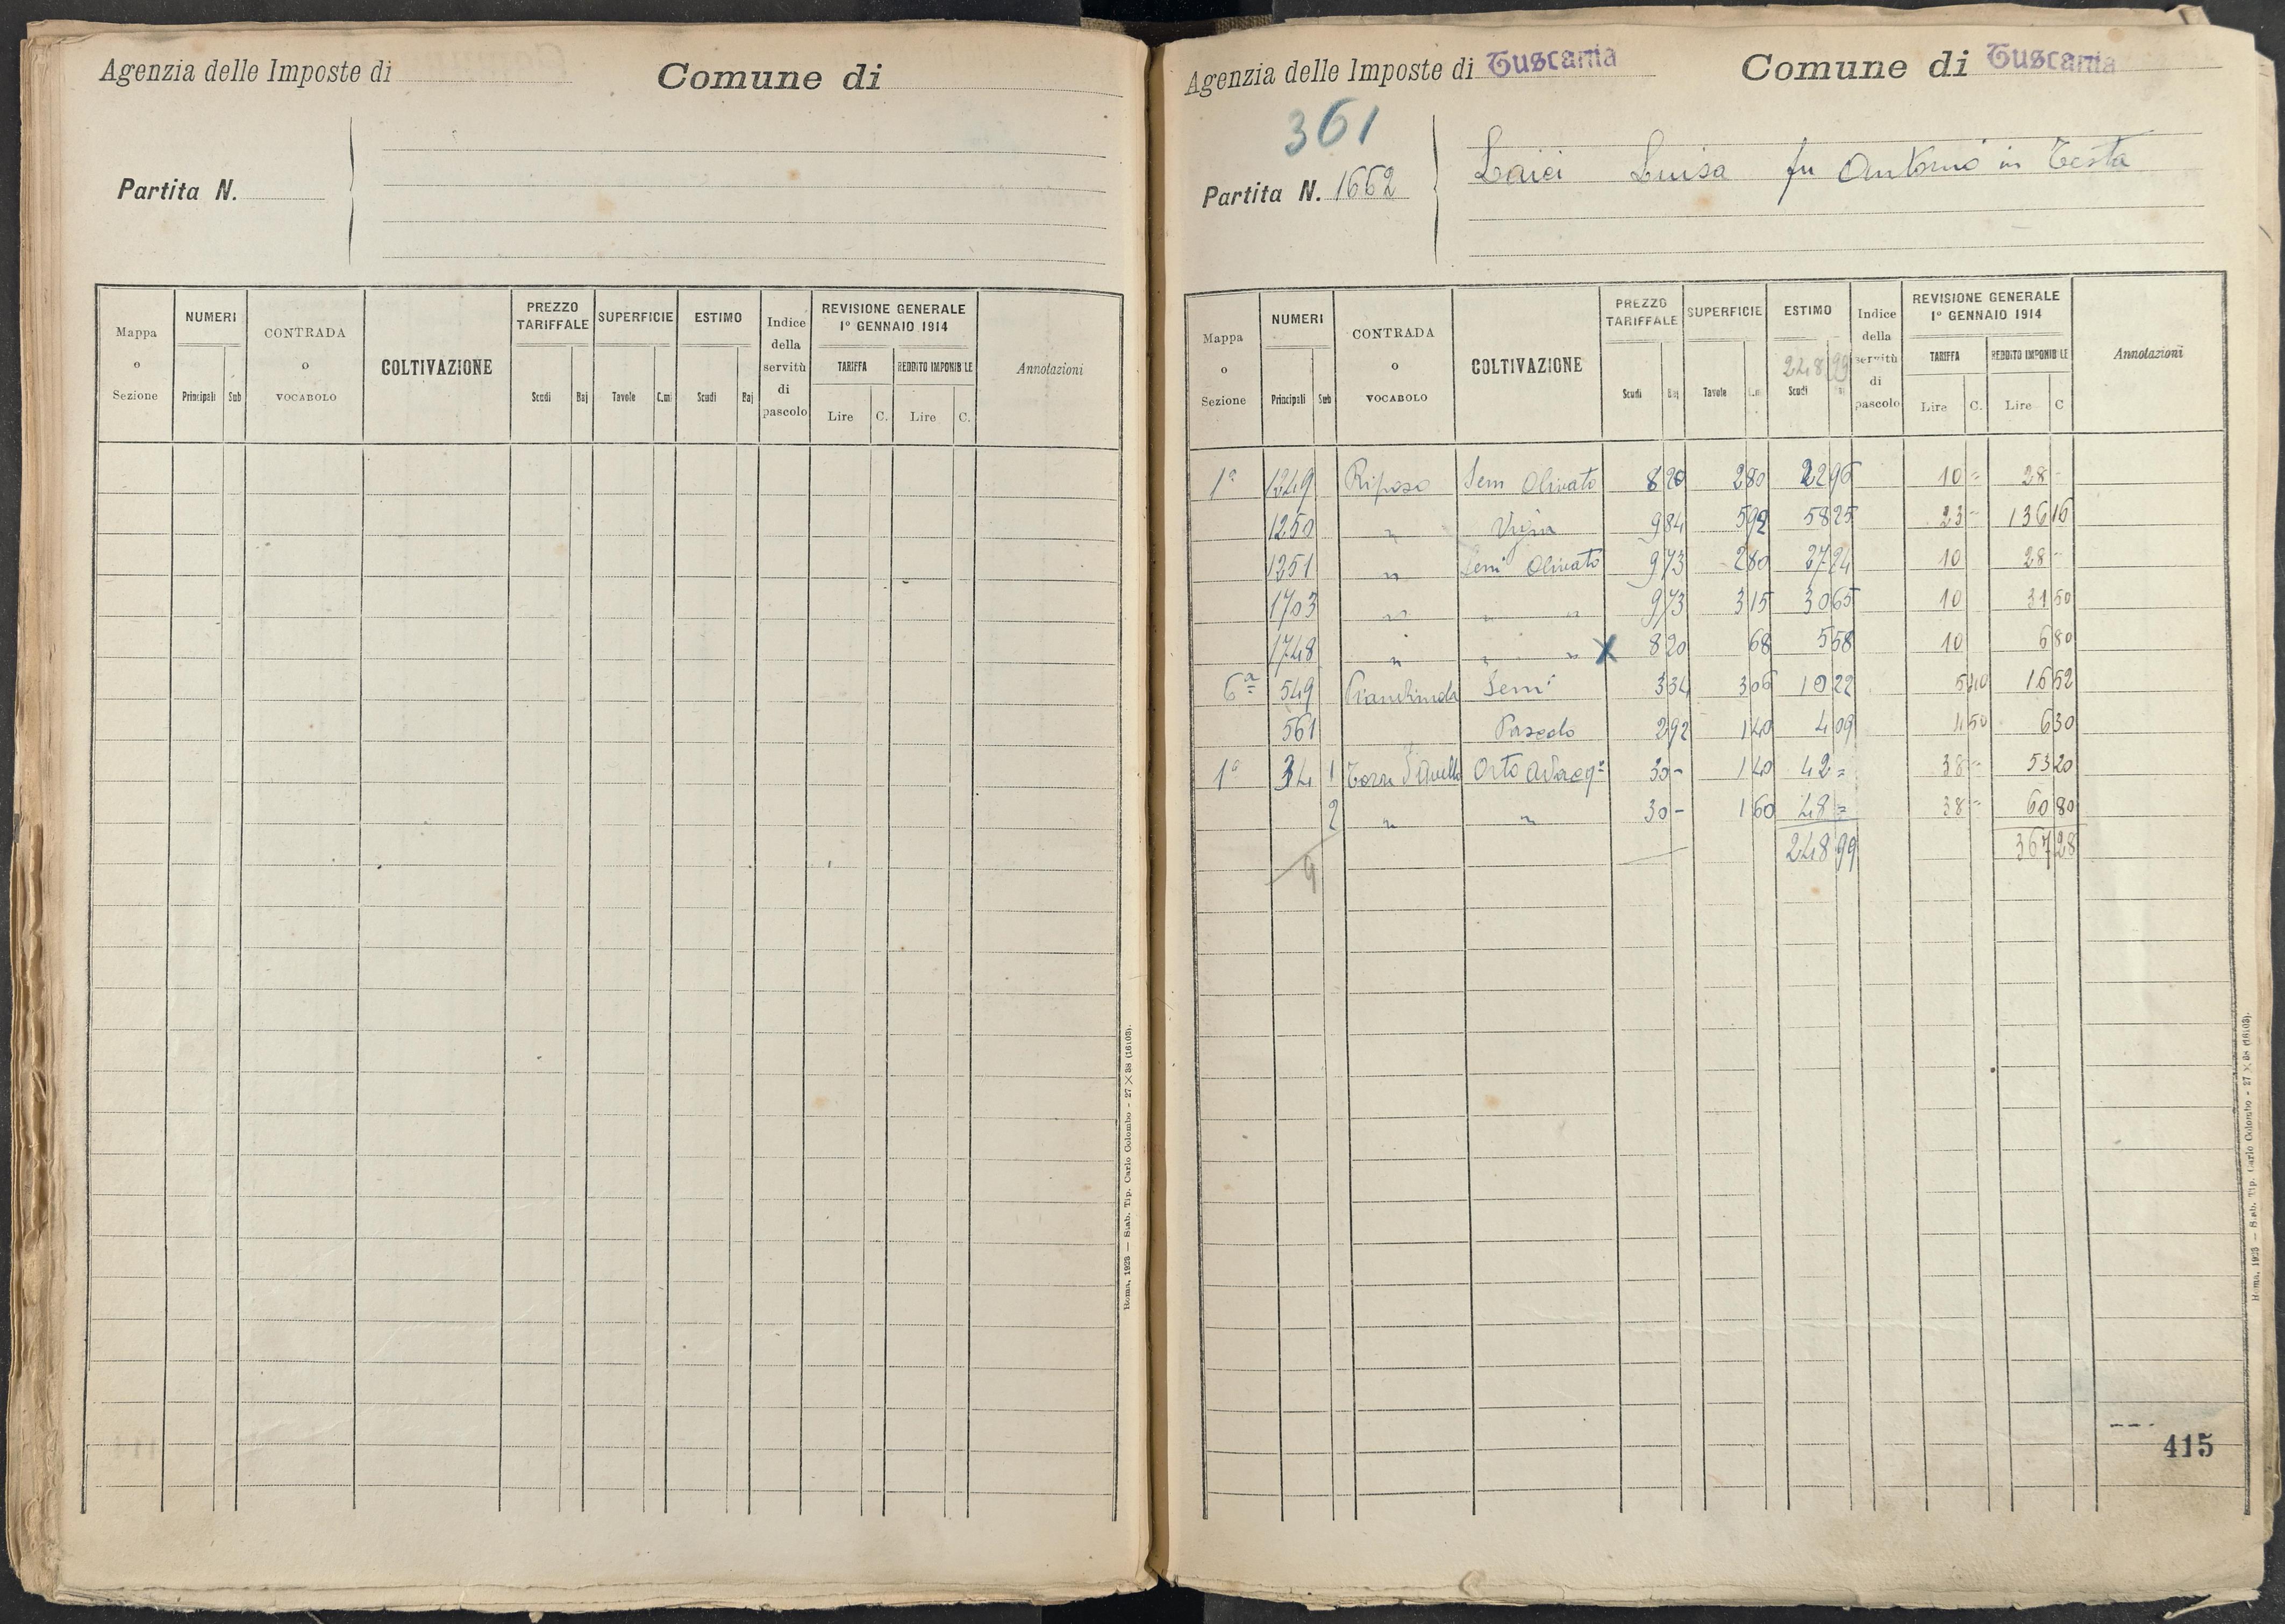 Agenzia delle Imposte di
Comune di
Partita N.
Mappa o Sezione
NUMERI
Principali Sub
CONTRADA o VOCABOLO
COLTIVAZIONE
PREZZO TARIFFALE
Scudi Baj
SUPERFICIE
Tavole C.mi
ESTIMO
Scudi Baj
Indice della servitù di pascolo
REVISIONE GENERALE 1º GENNAIO 1914
TARIFFA
Lire C.
REDDITO IMPONIBILE
Lire C.
Annotazioni
Roma, 1923 — Stab. Tip. Carlo Colombo - 27 × 38 (16103).
Agenzia delle Imposte di Tuscania
Comune di Tuscania
361
Partita N. 1662
Luisa fu Antonio in Testa
Mappa o Sezione
NUMERI
Principali Sub
CONTRADA o VOCABOLO
COLTIVAZIONE
PREZZO TARIFFALE
Scudi Baj
SUPERFICIE
Tavole C.mi
ESTIMO
248 99
Scudi Baj
Indice della servitù di pascolo
REVISIONE GENERALE 1º GENNAIO 1914
TARIFFA
Lire C.
REDDITO IMPONIBILE
Lire C
Annotazioni
1ª 1249 Riposo Sem Olivato 8 20 2 80 22 96 10 = 28 -
1250 " Vigna 9 84 5 92 58 25 23 - 136 16
1251 " Sem Olivato 9 73 2 80 27 24 10 28 -
1703 " " " 9 73 3 15 30 65 10 31 50
1748 " " " X 8 20 68 5 58 10 6 80
6ª 549 Sem 3 34 3 06 10 22 5 40 16 52
561 Pascolo 2 92 1 40 4 09 4 50 6 30
1ª 34 1 Orto Adacq 30 - 1 40 42 = 38 = 53 20
2 " " 30 - 1 60 48 = 38 = 60 80
9 248 99 367 28
415
Roma, 1923 — Stab. Tip. Carlo Colombo - 27 × 38 (16103).